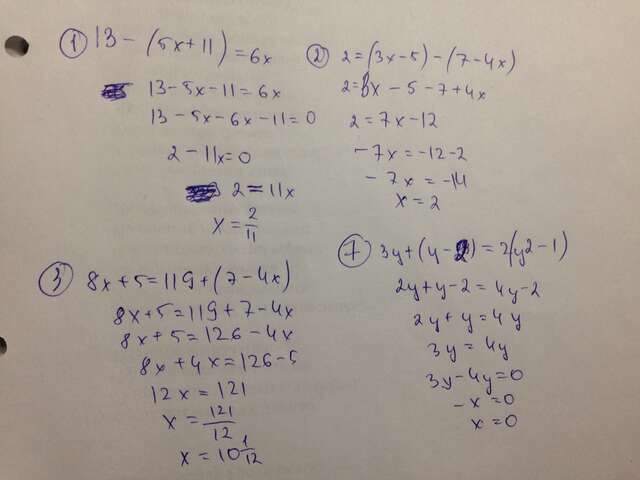 ① 13 - (5x+11) = 6x
13-5x-11=6x
13-5x-6x-11=0
2-11x=0
2=11x
x=2/11
② 2=(3x-5)-(7-4x)
2=3x-5-7+4x
2=7x-12
-7x=-12-2
-7x=-14
x=2
③ 8x+5=119+(7-4x)
8x+5=119+7-4x
8x+5=126-4x
8x+4x=126-5
12x=121
x=121/12
x=10 1/12
⑦ 3y+(y-2)=2(y2-1)
2y+y-2=4y-2
2y+y=4y
3y=4y
3y-4y=0
-x=0
x=0